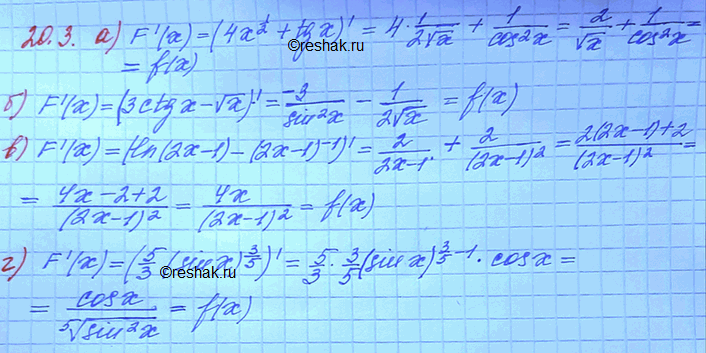 20.3. а) F'(x) = (4x^{1/2} + tg x)' = 4 · 1/(2√x) + 1/cos²x = 2/√x + 1/cos²x =
©reshak.ru
= f(x)
б) F'(x) = (3ctg x - √x)' = -3/sin²x - 1/(2√x) = f(x)
в) F'(x) = (ln(2x-1) - (2x-1)^{-1})' = 2/(2x-1) + 2/(2x-1)² = (2(2x-1)+2)/(2x-1)² =
= (4x-2+2)/(2x-1)² = 4x/(2x-1)² = f(x)
г) F'(x) = (5/3 (sin x)^{3/5})' = 5/3 · 3/5 (sin x)^{3/5 - 1} · cos x =
©reshak.ru
= cos x/⁵√(sin²x) = f(x)